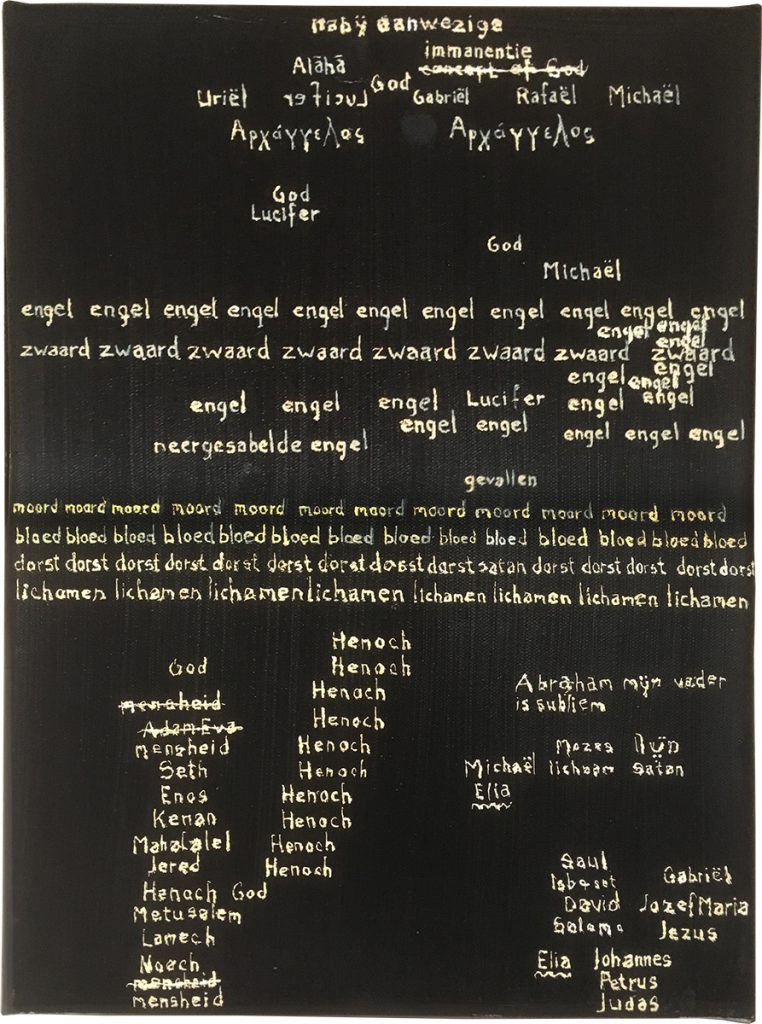 nabÿ aanwezige
immanentie
Alāhā concept of God
God
Uriël Lucifer Gabriël Rafaël Michaël
Αρχάγγελος Αρχάγγελος
God
Lucifer
God
Michaël
engel engel engel engel engel engel engel engel engel engel engel
engel engel
engel
zwaard zwaard zwaard zwaard zwaard zwaard zwaard zwaard
engel
engel engel
engel engel engel Lucifer engel engel
engel engel
neergesabelde engel engel engel engel
gevallen
moord moord moord moord moord moord moord moord moord moord moord moord
bloed bloed bloed bloed bloed bloed bloed bloed bloed bloed bloed bloed bloed bloed
dorst dorst dorst dorst dorst dorst dorst dorst dorst satan dorst dorst dorst dorst dorst
lichamen lichamen lichamen lichamen lichamen lichamen lichamen lichamen
Henoch
God Henoch
Henoch
mensheid
Adam Eva Henoch
mensheid Henoch
Seth Henoch
Enos Henoch
Kenan Henoch
Mahalalel Henoch
Jered Henoch
Henoch God
Metusalem
Lamech
Noach
mensheid
mensheid
Abraham mÿn vader
is subliem
Mozes mÿn
Michaël lichaam satan
Elia
Saul
Isboset Gabriël
David Jozef Maria
Salomo Jezus
Elia Johannes
Petrus
Judas